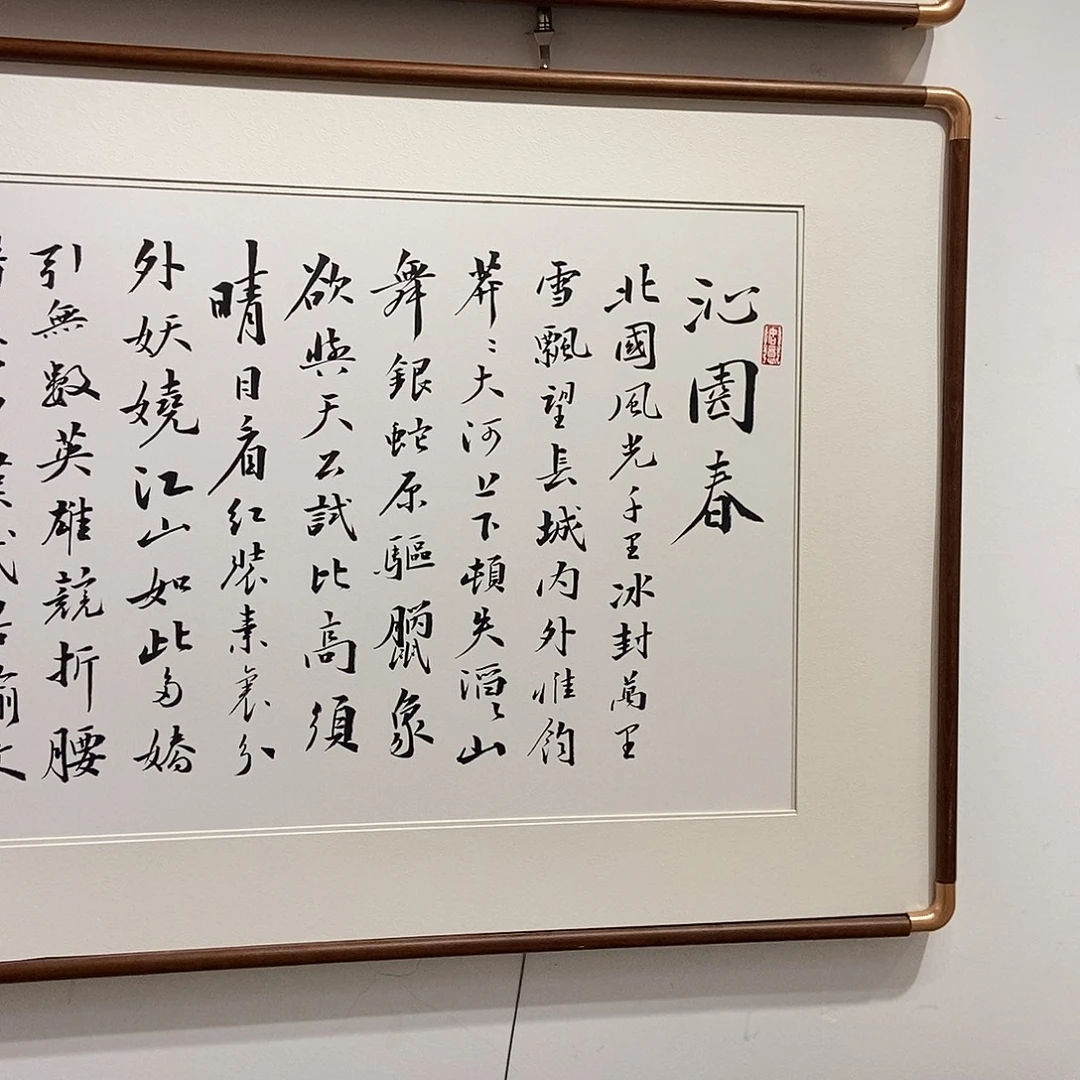 沁園春
北國風光千里冰封萬里
雪飄望長城内外惟
莽〻大河上下頓失滔〻山
舞銀蛇原驅臘象
欲與天公試比高須
晴日看紅裝素裹分
外妖嬈江山如此多嬌
引無數英雄競折腰